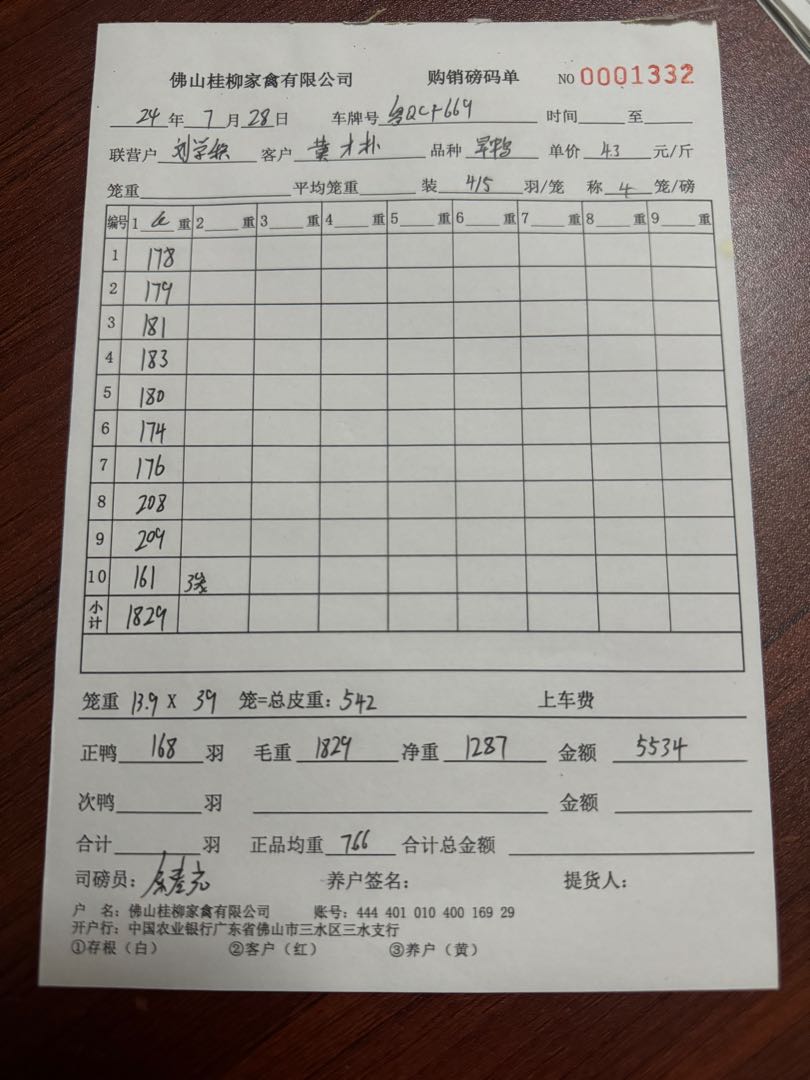 佛山桂柳家禽有限公司 购销磅码单 NO 0001332
24 年 7 月 28 日 车牌号 时间 至
联营户 客户 黄才朴 品种 旱鸭 单价 4.3 元/斤
笼重 平均笼重 装 4/5 羽/笼 称 4 笼/磅
编号 1 重 2 重 3 重 4 重 5 重 6 重 7 重 8 重 9 重
1 178
2 179
3 181
4 183
5 180
6 174
7 176
8 208
9 209
10 161 3笼
小计 1829
笼重 13.9 X 39 笼=总皮重：542 上车费
正鸭 168 羽 毛重 1829 净重 1287 金额 5534
次鸭 羽 金额
合计 羽 正品均重 766 合计总金额
司磅员： 养户签名： 提货人：
户 名：佛山桂柳家禽有限公司 账号：444 401 010 400 169 29
开户行：中国农业银行广东省佛山市三水区三水支行
①存根（白） ②客户（红） ③养户（黄）